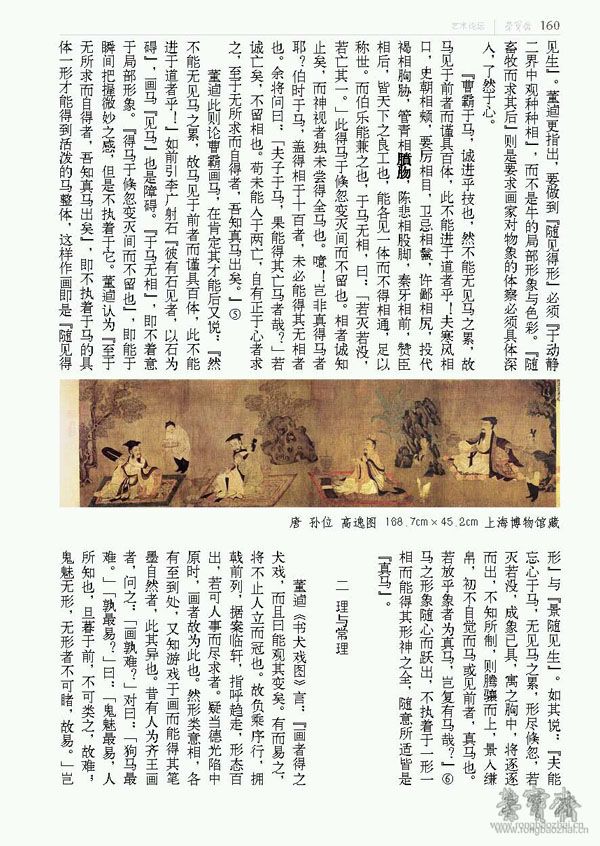 艺术论坛 荣宝斋 160
见生』。董逌更指出，要做到『随见得形』必须『于动静
二界中观种种相』，而不是牛的局部形象与色彩。『随
畜牧而求其后』则是要求画家对物象的体察必须具体深
人，了然于心。
『曹霸于马，诚进乎技也，然不能无见马之累，故
马见于前者而谨具百体，此不能进于道者乎！夫寒风相
口，史朝相颊，要厉相目，卫忌相髭，许鄙相尻，投代
褐相胸胁，管青相膹肳，陈悲相股脚，秦牙相前，赞臣
相后，皆天下之良工也，能各见一体而不得相通，足以
称世。而伯乐能兼之也，于马无相，曰：「若灭若没，
若亡其一。」此得马于倏忽变灭间而不留也。相者诚知
止矣，而神视者独未尝得全马也。噫！岂非真得马者
耶？伯时于马，盖得相于十百者，未必能得其无相者
也。余将问曰：「夫子于马，果能得其亡马者哉？」若
诚亡矣，不留相也。苟未能入于两亡，自有正于心者求
之，至于无所求而自得者，吾知真马出矣。』⑤
董逌此则论曹霸画马，在肯定其才能后又说：『然
不能无见马之累，故马见于前者而谨具百体，此不能
进于道者乎！』如前引李广射石『彼有石见者，以石为
碍』，画马『见马』也是障碍。『于马无相』，即不着意
于局部形象。『得马于倏忽变灭间而不留也』，即能于
瞬间把握微妙之感，但是不执着于它。董逌认为『至于
无所求而自得者，吾知真马出矣』，即不执着于马的具
体一形才能得到活泼的马整体，这样作画即是『随见得
唐 孙位 高逸图 168.7cm×45.2cm 上海博物馆藏
形』与『景随见生』。如其说：『夫能
忘心于马，无见马之累，形尽倏忽，若
灭若没，成象已具，寓之胸中，将逐逐
而出，不知所制，则腾骧而上，景入缣
帛，初不自觉而马或见前者，真马也。
若放乎象者为真马，岂复有马哉？』⑥
马之形象随心而跃出，不执着于一形一
相而能得其形神之全，随意所适皆是
『真马』。
二 理与常理
董逌《书犬戏图》言：『画者得之
犬戏，而且曰能观其变矣。有而易之，
将不止人立而冠也。故负乘序行，拥
戟前列，据案临轩，指呼趋走，形态百
出，若可人事而尽求者。疑当德光陷中
原时，画者故为此也。然形类意相，各
有至到处，又知游戏于画而能得其笔
墨自然者，此其异也。昔有人为齐王画
者，问之：「画孰难？」对曰：「狗马最
难。」「孰最易？」曰：「鬼魅最易，人
所知也，旦暮于前，不可类之，故难；
鬼魅无形，无形者不可睹，故易。」岂
荣宝斋
www.rongbaozhai.cn